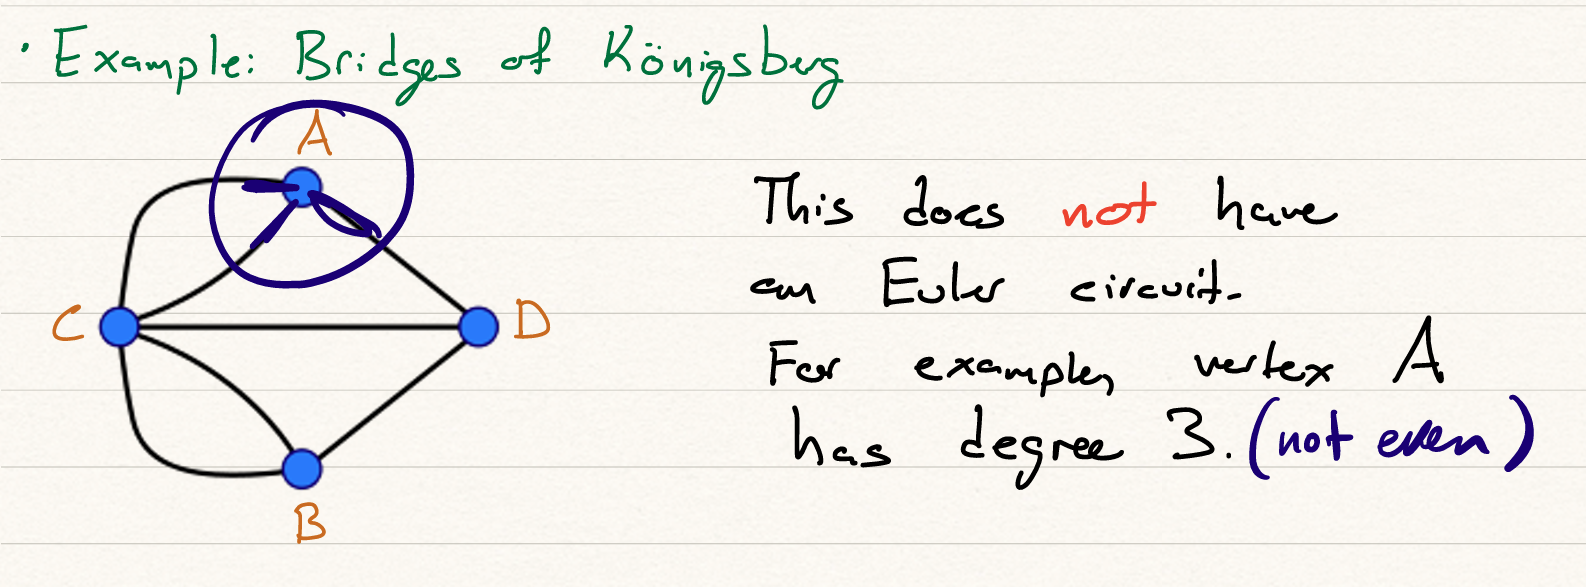 · Example: Bridges of Königsberg
A
C
D
B
This does not have
an Euler circuit.
For example, vertex A
has degree 3. (not even)